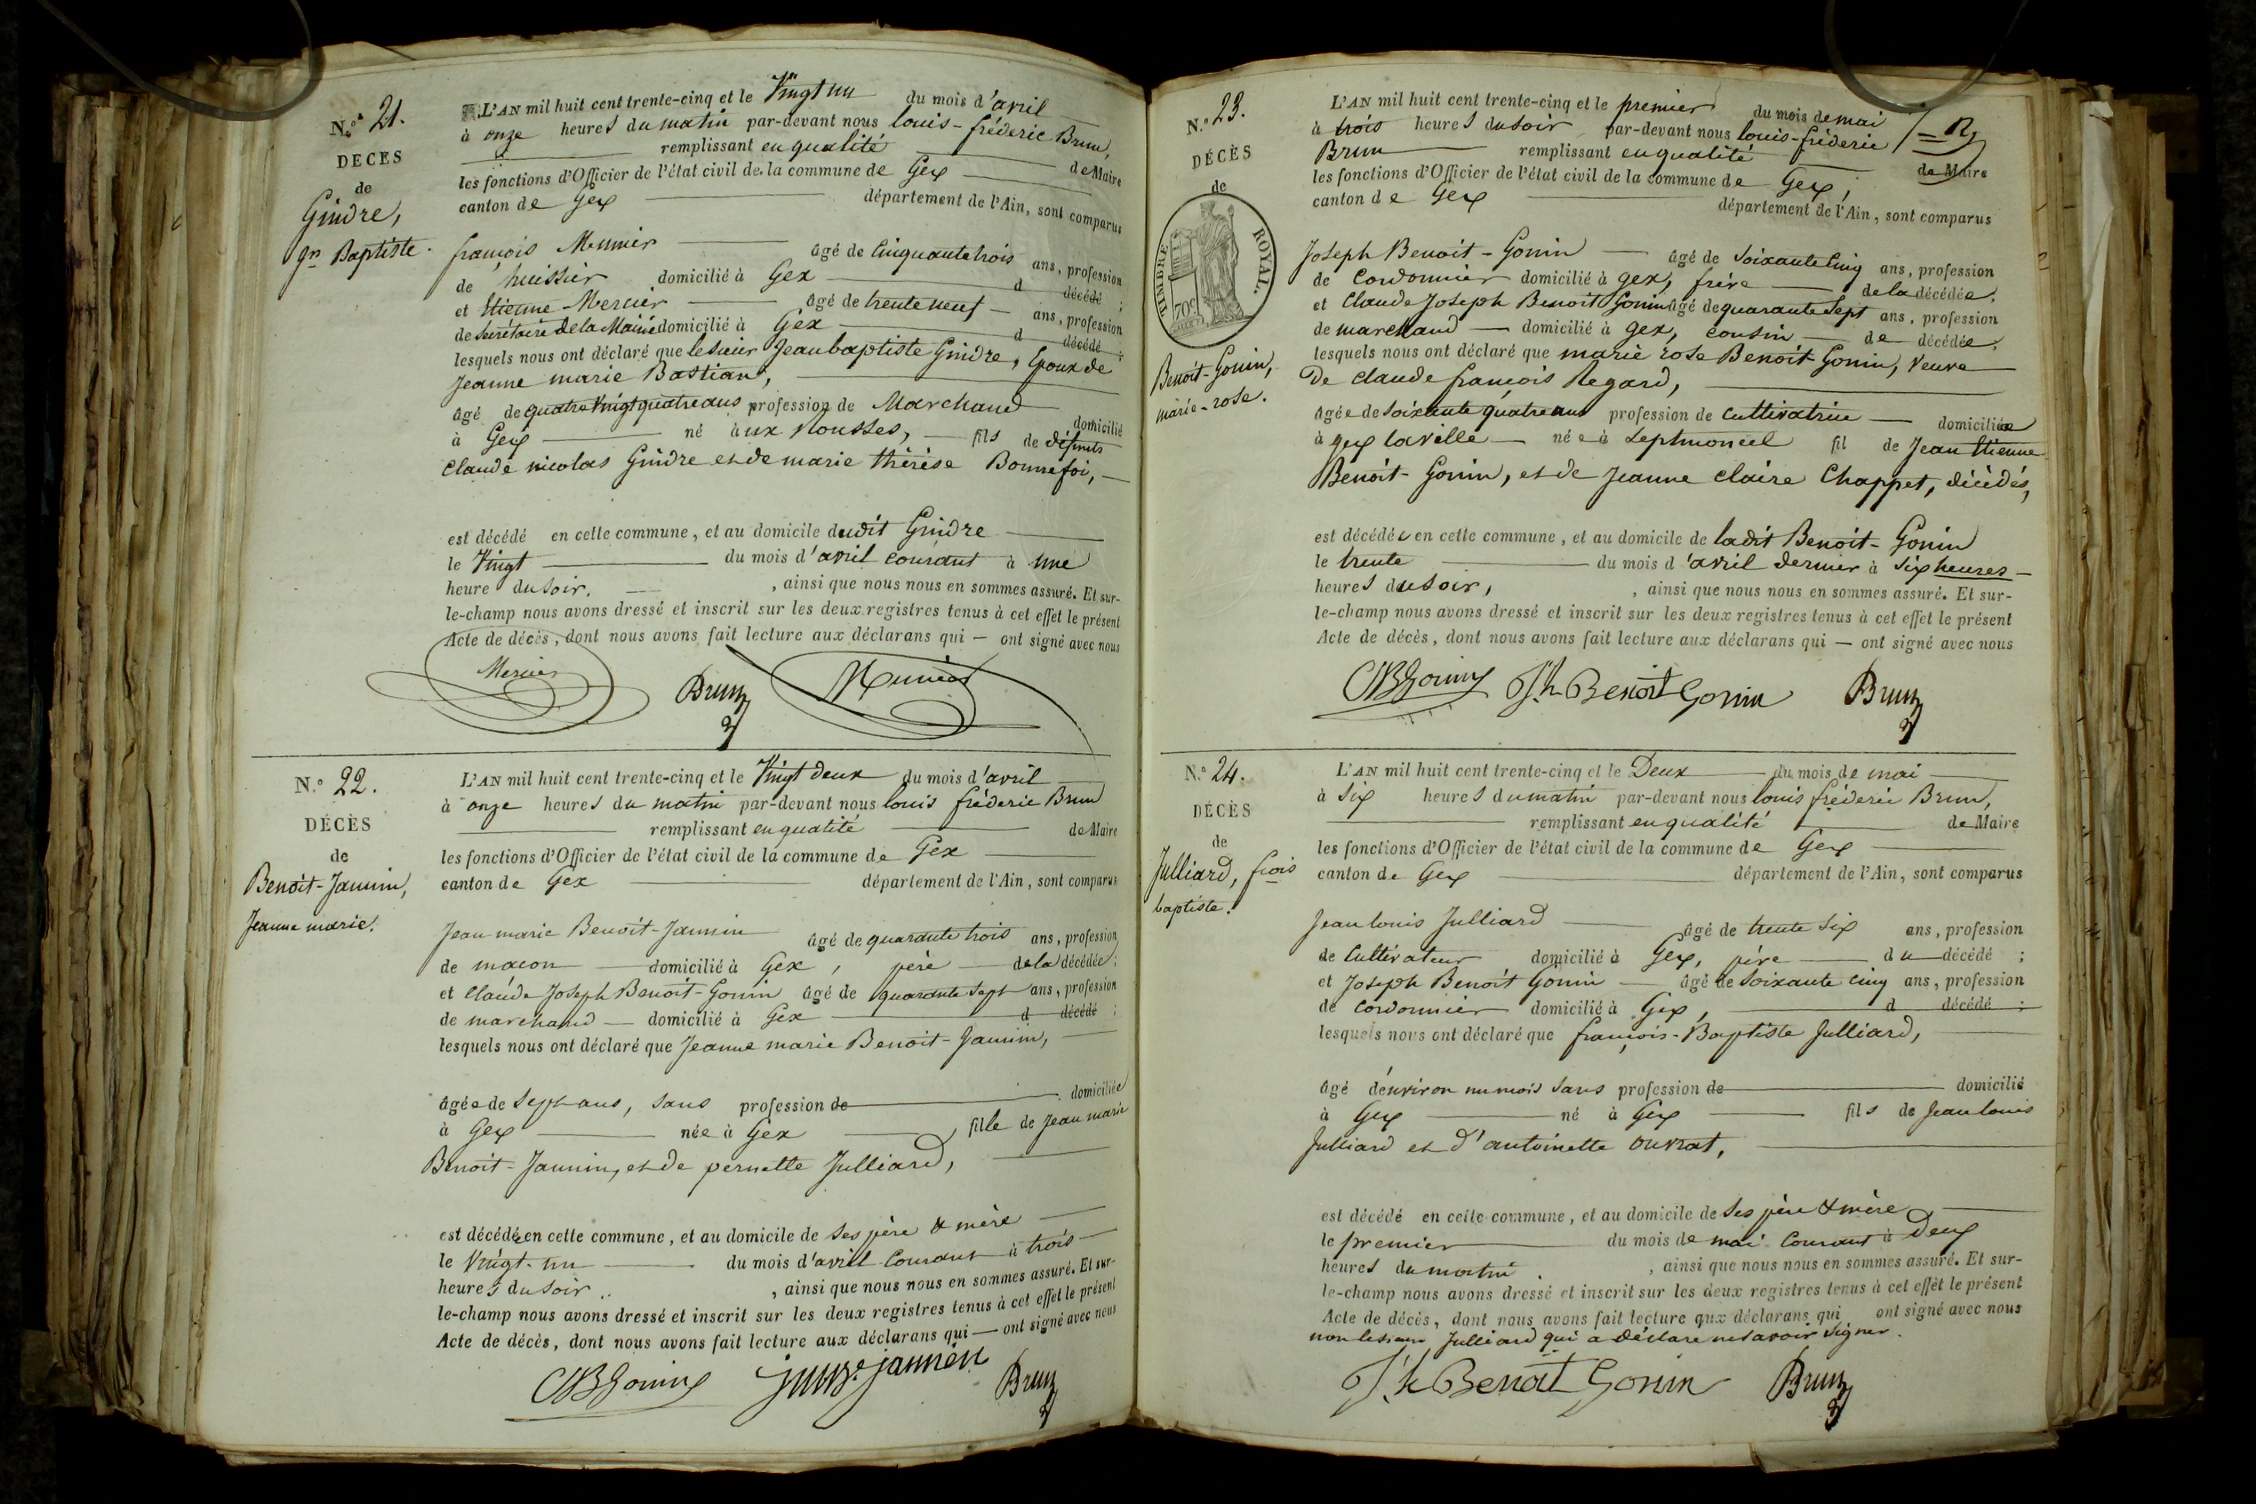 N.º 21.
DÉCÈS
de
Gindre,
Jn Baptiste.
L'AN mil huit cent trente-cinq et le Vingt un du mois d'avril
à onze heures du matin par-devant nous louis-fréderic Brun,
remplissant en qualité de Maire
les fonctions d'Officier de l'état civil de la commune de Gex
canton de Gex département de l'Ain, sont comparus
françois Munier âgé de Cinquante trois ans, profession
de huissier domicilié à Gex d décédé ;
et Etienne Mercier âgé de trente neuf ans, profession
de Secrétaire de la Mairie domicilié à Gex d décédé ;
lesquels nous ont déclaré que le sieur Jean baptiste Gindre, Epoux de
Jeanne marie Bastian,
âgé de quatre Vingt quatre ans profession de Marchand domicilié
à Gex né aux Rousses, fils de défunts
Claude nicolas Gindre et de marie thérèse Bonnefoi,
est décédé en cette commune, et au domicile dudit Gindre
le Vingt du mois d'avril courant à une
heure du soir. , ainsi que nous nous en sommes assuré. Et sur-
le-champ nous avons dressé et inscrit sur les deux registres tenus à cet effet le présent
Acte de décès, dont nous avons fait lecture aux déclarans qui — ont signé avec nous
Mercier Brun Munier
N.º 22.
DÉCÈS
de
Benoit-Jannin,
Jeanne marie.
L'AN mil huit cent trente-cinq et le Vingt deux du mois d'avril
à onze heures du matin par-devant nous louis fréderic Brun
remplissant en qualité de Maire
les fonctions d'Officier de l'état civil de la commune de Gex
canton de Gex département de l'Ain, sont comparus
Jean marie Benoit-Jannin âgé de quarante trois ans, profession
de macon domicilié à Gex, père de la décédée ;
et Claude Joseph Benoit-Gonin âgé de quarante sept ans, profession
de marchand domicilié à Gex d décédé ;
lesquels nous ont déclaré que Jeanne marie Benoit-Jannin,
âgée de Sept ans, sans profession de domiciliée
à Gex née à Gex, fille de Jean marie
Benoit-Jannin, et de pernette Julliard,
est décédée en cette commune, et au domicile de ses père & mère
le Vingt-un du mois d'avril courant à trois
heures du soir , ainsi que nous nous en sommes assuré. Et sur-
le-champ nous avons dressé et inscrit sur les deux registres tenus à cet effet le présent
Acte de décès, dont nous avons fait lecture aux déclarans qui — ont signé avec nous
CJBGonin jannin Brun
N.º 23.
DÉCÈS
de
TIMBRE ROYAL.
70c
Benoit-Gonin,
marie-rose.
L'AN mil huit cent trente-cinq et le premier du mois de mai
à trois heures du soir par-devant nous louis-fréderic
Brun remplissant en qualité de Maire
les fonctions d'Officier de l'état civil de la commune de Gex,
canton de Gex département de l'Ain, sont comparus
Joseph Benoit-Gonin âgé de Soixante Cinq ans, profession
de Cordonnier domicilié à gex, frère de la décédée ;
et Claude Joseph Benoit Gonin âgé de quarante Sept ans, profession
de marchand domicilié à gex, cousin de décédée ;
lesquels nous ont déclaré que marie rose Benoit Gonin, Veuve
De claude françois Regard,
âgée de Soixante quatre ans profession de cultivatrice domiciliée
à gex la ville née à Septmoncel fil de Jean Etienne
Benoit-Gonin, et de Jeanne Claire Chappet, décédés,
est décédée en cette commune, et au domicile de ladit Benoit-Gonin
le trente du mois d'avril dernier à Six heures
heures du soir, , ainsi que nous nous en sommes assuré. Et sur-
le-champ nous avons dressé et inscrit sur les deux registres tenus à cet effet le présent
Acte de décès, dont nous avons fait lecture aux déclarans qui — ont signé avec nous
CJBGonin Jh Benoit Gonin Brun
N.º 24.
DÉCÈS
de
Julliard, frois
baptiste.
L'AN mil huit cent trente-cinq et le Deux du mois de mai
à Six heures du matin par-devant nous louis fréderic Brun,
remplissant en qualité de Maire
les fonctions d'Officier de l'état civil de la commune de Gex
canton de Gex département de l'Ain, sont comparus
Jean louis Julliard âgé de trente Six ans, profession
de Cultivateur domicilié à Gex, père du décédé ;
et Joseph Benoit Gonin âgé de Soixante cinq ans, profession
de Cordonnier domicilié à Gex, d décédé ;
lesquels nous ont déclaré que françois-Baptiste Julliard,
âgé d'environ un mois sans profession de domicilié
à Gex né à Gex fils de Jean louis
Julliard et d'antoinette ouvrat,
est décédé en cette commune, et au domicile de ses père & mère
le premier du mois de mai courant à Deux
heures du matin , ainsi que nous nous en sommes assuré. Et sur-
le-champ nous avons dressé et inscrit sur les deux registres tenus à cet effet le présent
Acte de décès, dont nous avons fait lecture aux déclarans qui ont signé avec nous
non le sieur Julliard qui a déclaré ne savoir signer.
Jh Benoit Gonin Brun